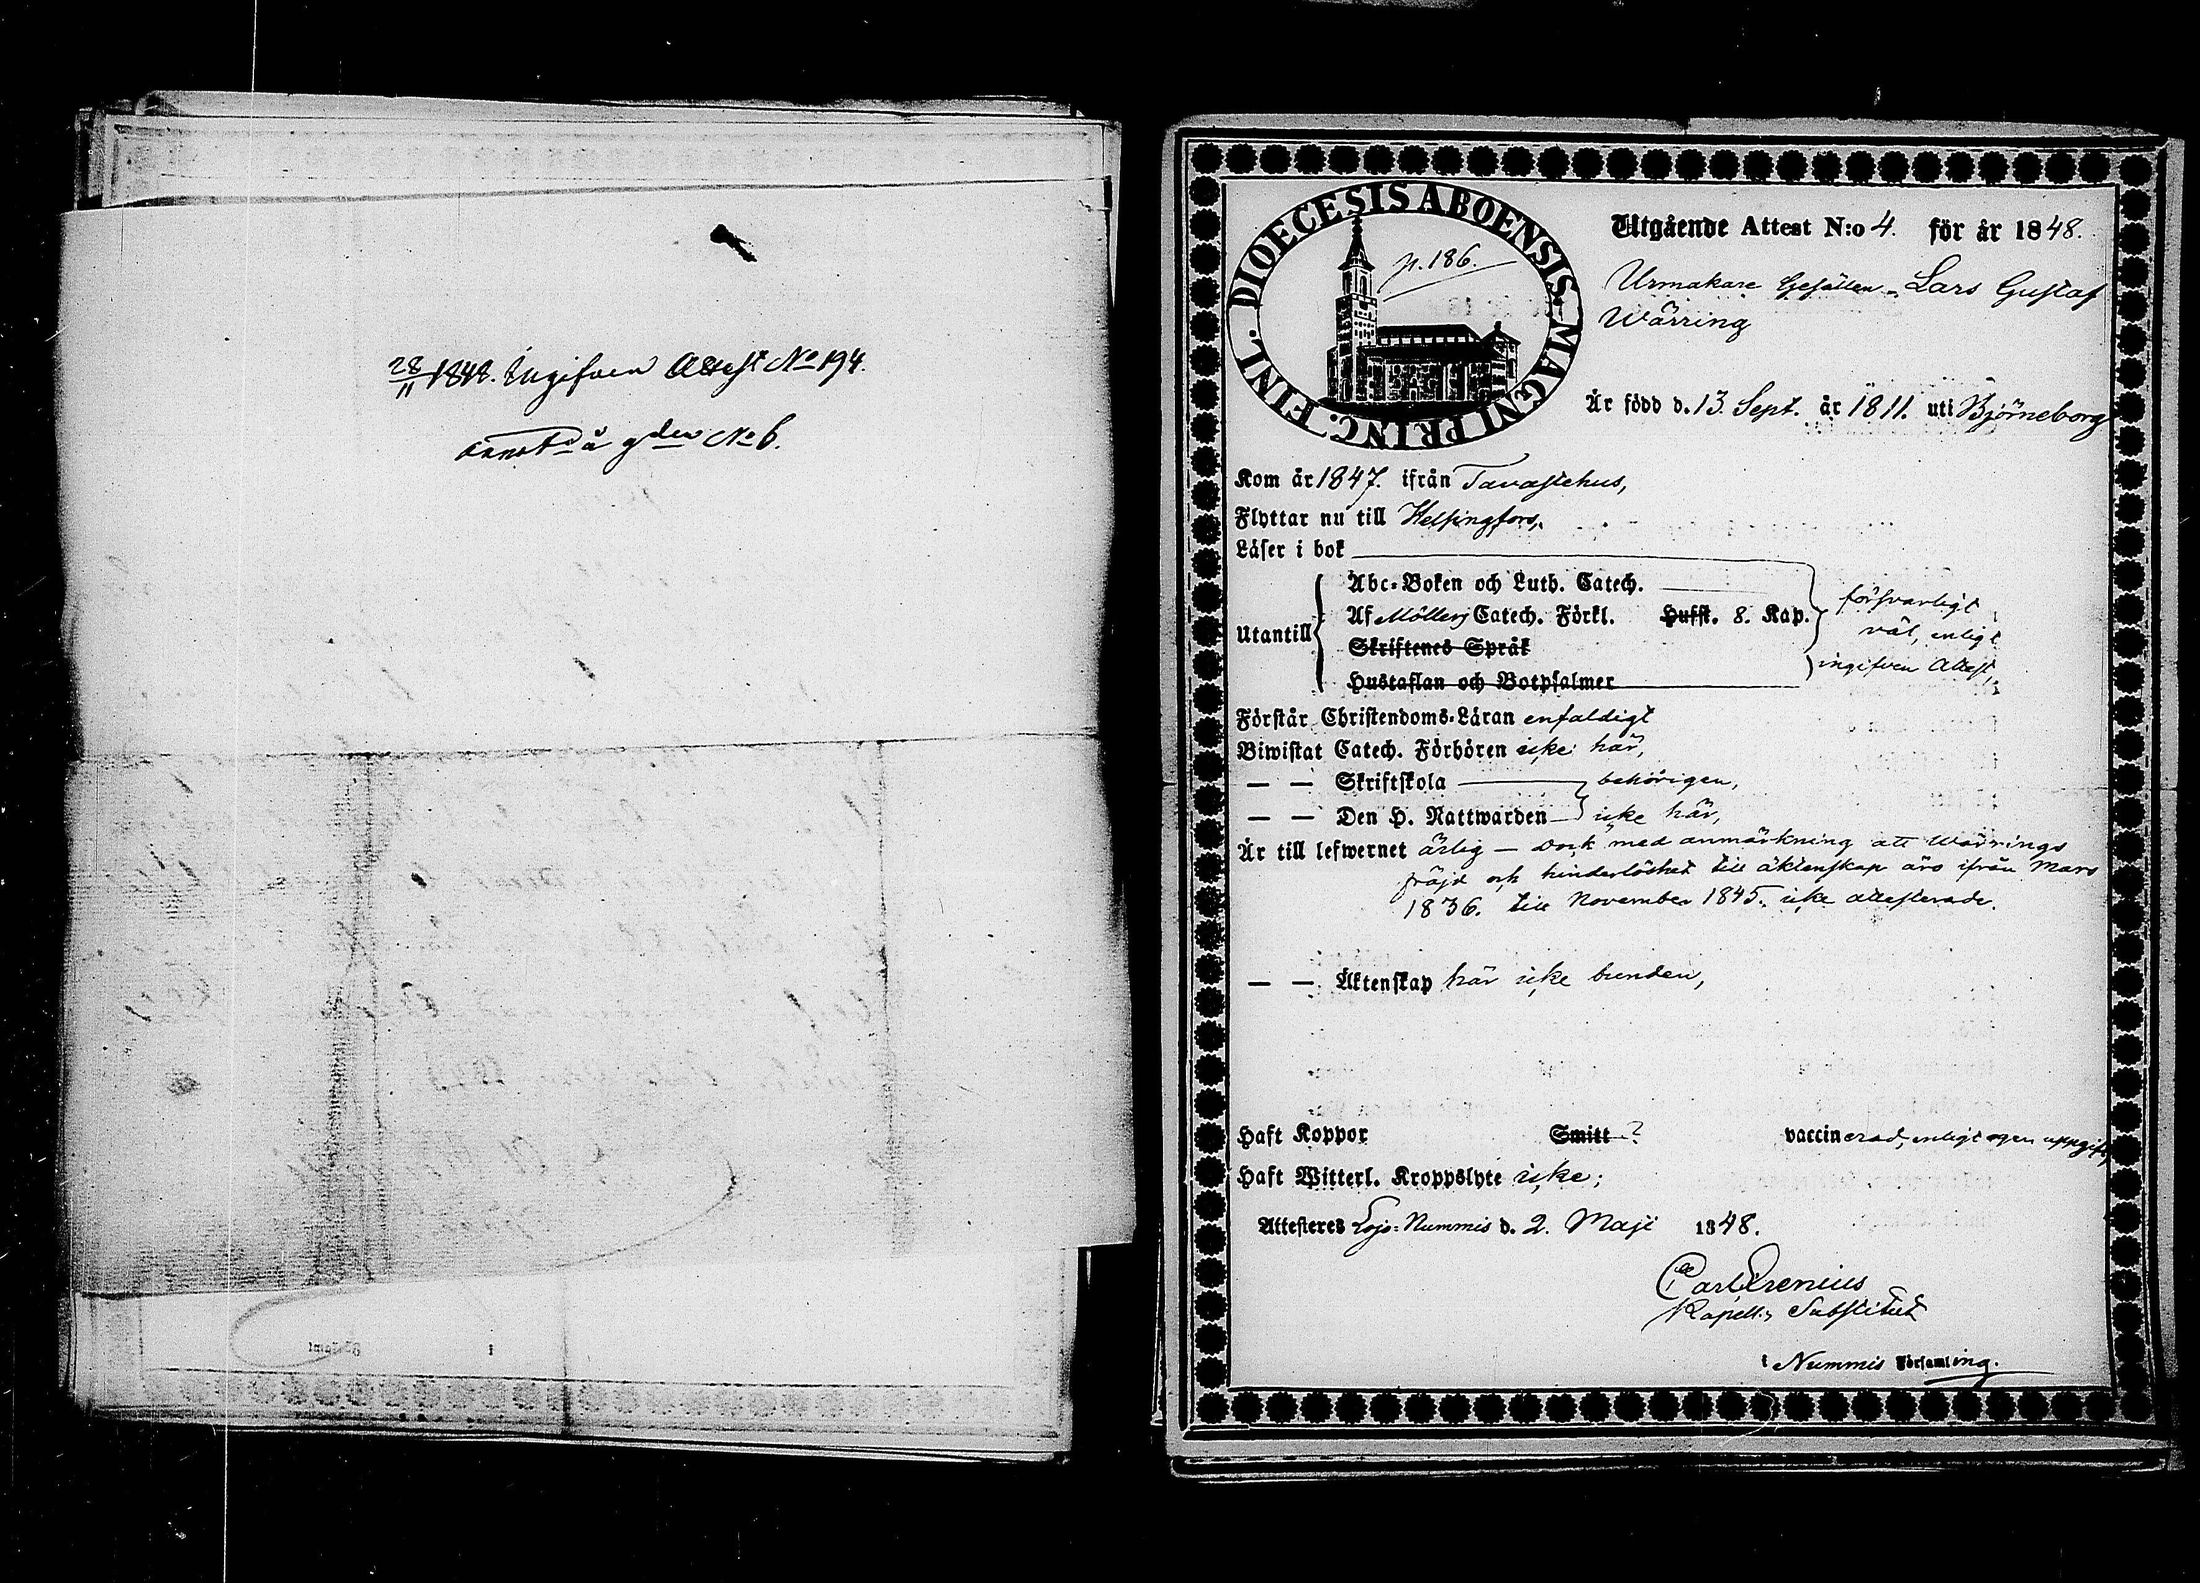 28/11 1848. Ingifven Attest No 194.
annotd å gden No 6.
DIOECESIS ABOENSIS MAGNI PRINC. FINL.
p. 186.
Utgående Attest N:o 4. för år 1848.
Urmakare Gesällen Lars Gustaf
Wärring
Är född d. 13. Sept. år 1811. uti Björneborg
Kom år 1847. ifrån Tavastehus,
Flyttar nu till Helsingfors,
Läser i bok
Utantill
Abc-Boken och Luth. Catech.
Af Möllers Catech. Förkl. Husst. 8. Kap.
Skriftenes Språk
Hustaflan och Botpsalmer
försvarligt
väl, enligt
ingifven Attest,
Förstår Christendoms-Läran enfaldigt
Biwistat Catech. Förhören icke här,
— — Skriftskola behörigen,
— — Den H. Nattwarden icke här,
Är till lefwernet ärlig — dock med anmärkning att Wärrings
fräjd och hinderlöshet till äktenskap äro ifrån Mars
1836. till November 1845. icke attesterade.
— — Äktenskap här icke bunden,
Haft Koppor Smitt ? vaccinerad, enligt egen uppgift,
Haft Witterl. Kroppslyte icke;
Attesteres Lojo-Nummis d. 2. Maji 1848.
Carl Orenius
Kapell:s Substitut
i Nummis Församling.